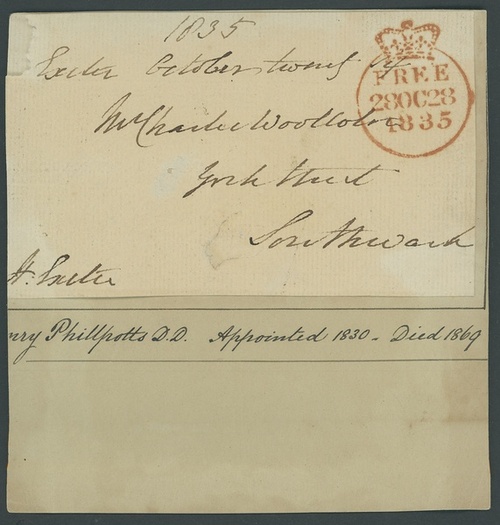 1835
Exeter October twenty
FREE
28OC28
1835
Mr Charles Woolcombe
York Street
Southwark
H. Exeter
nry Phillpotts D.D. Appointed 1830 - Died 1869